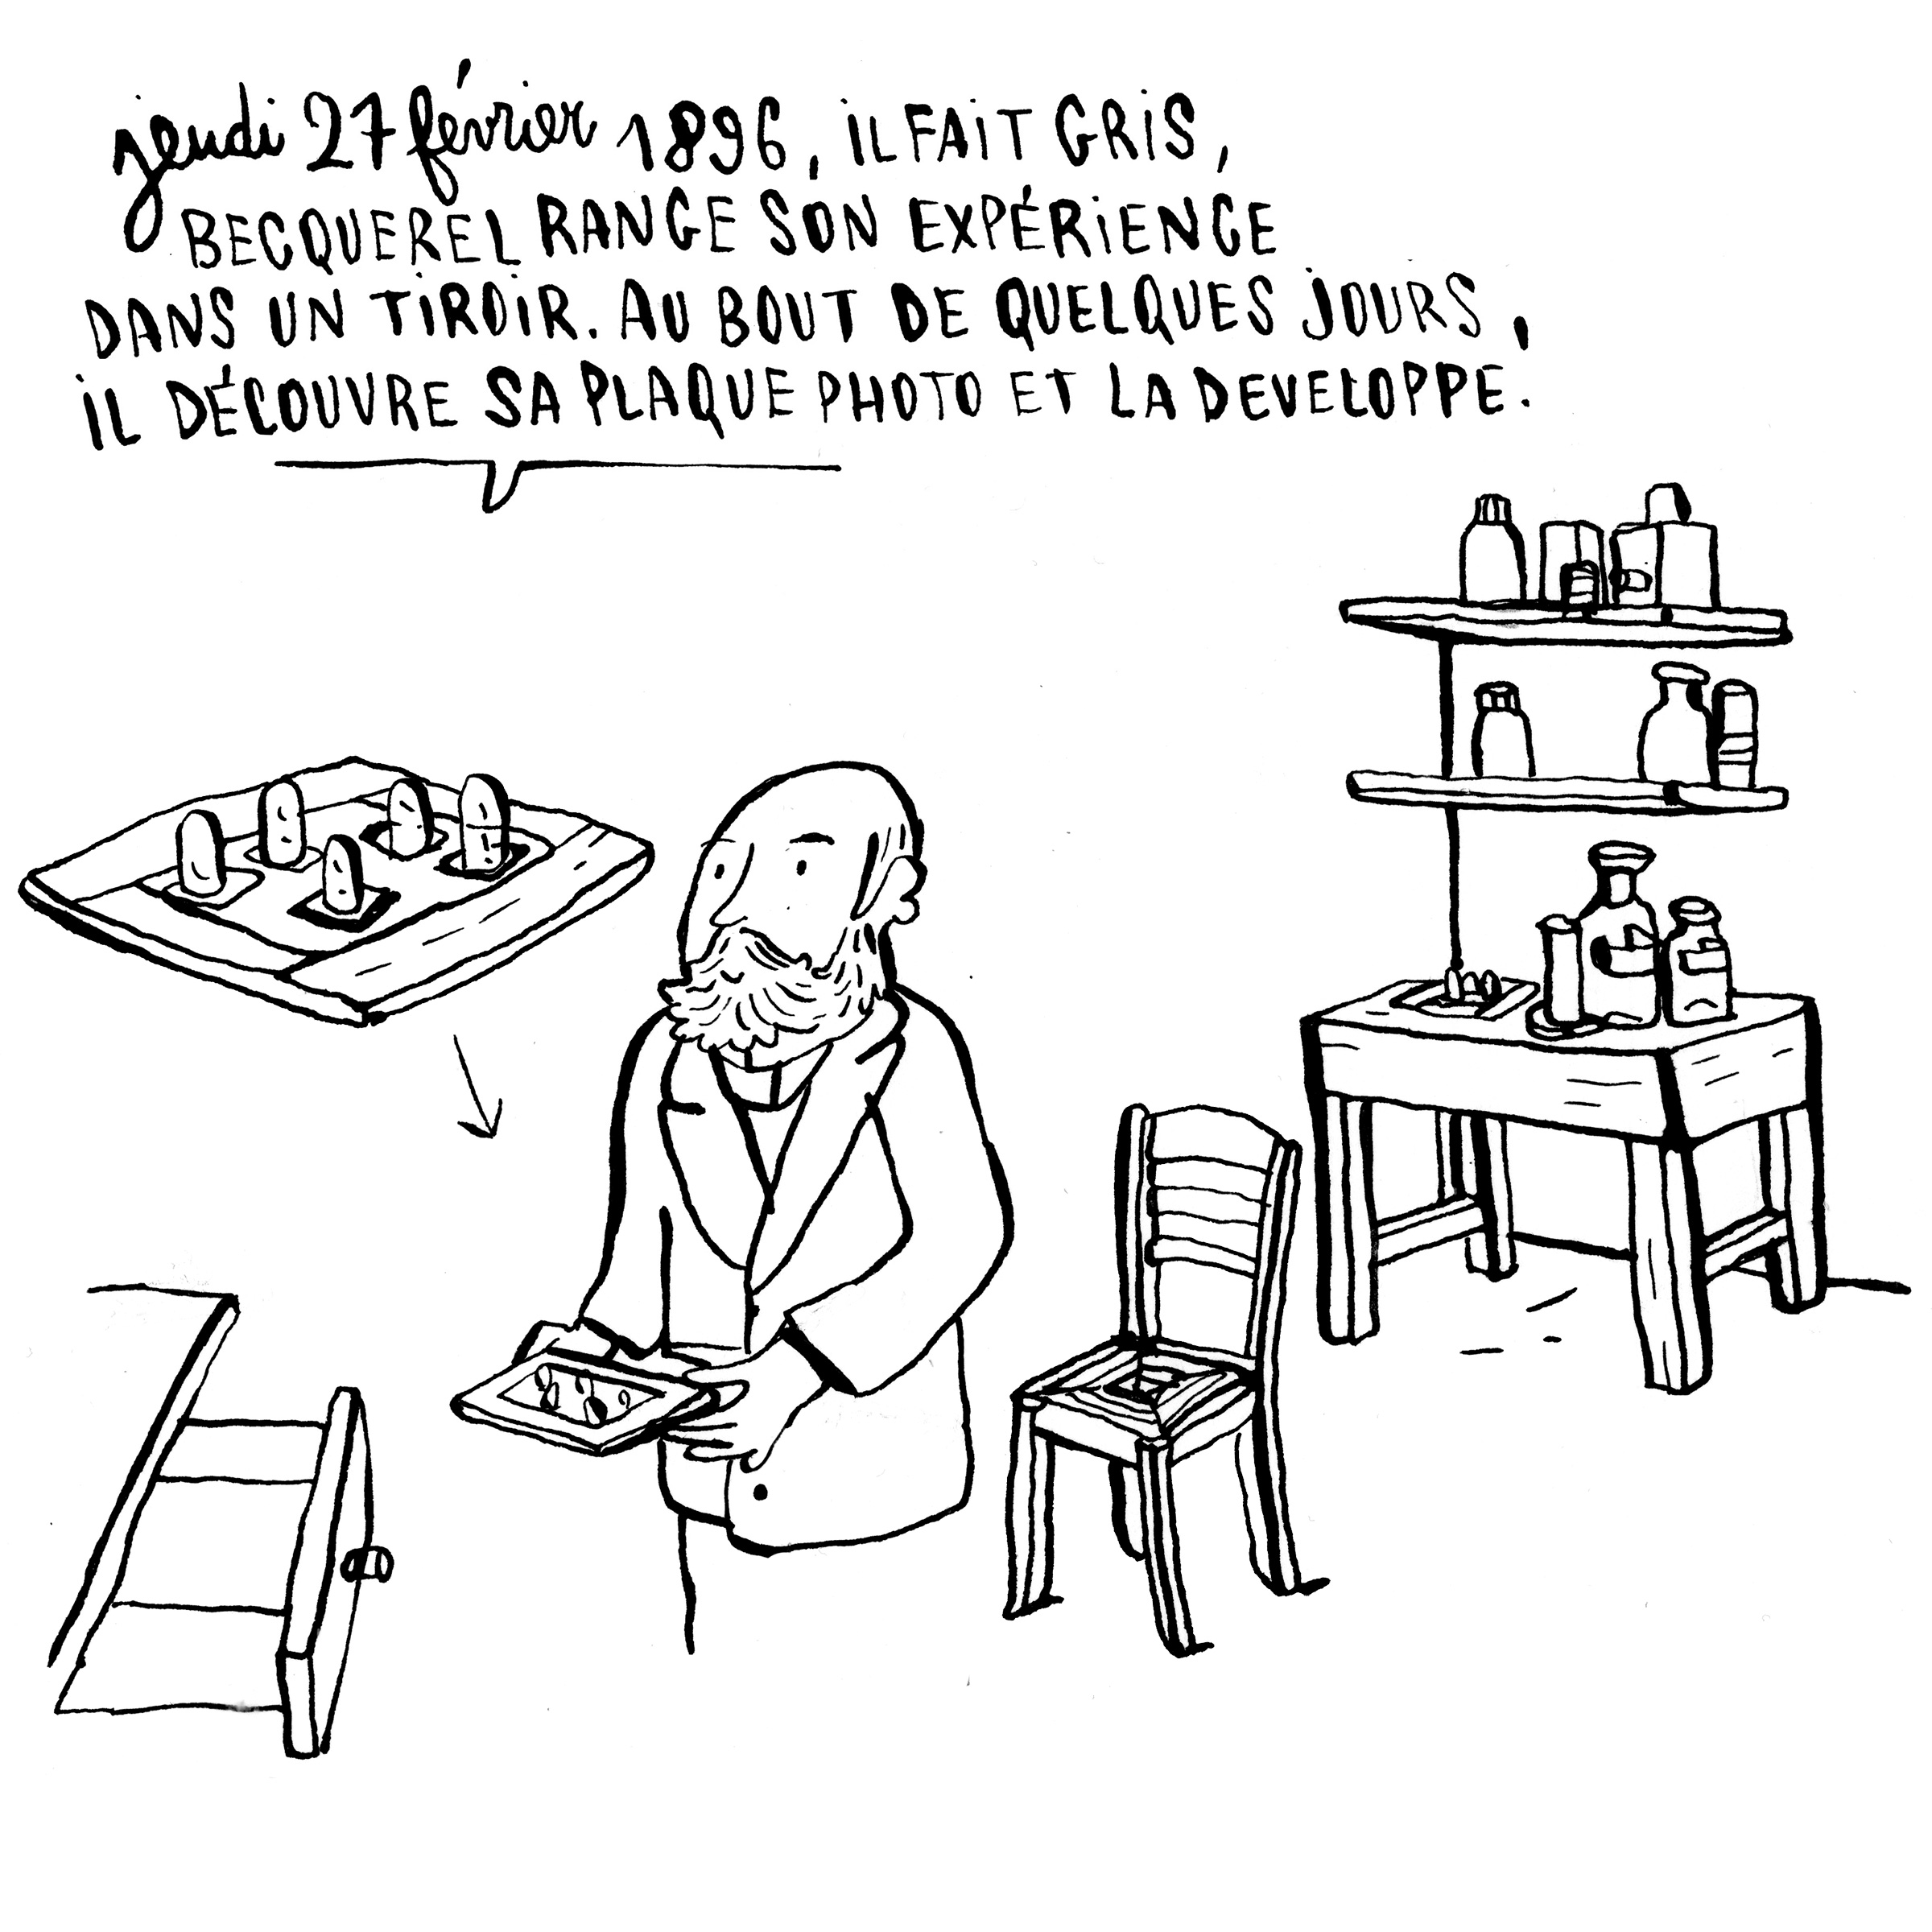 jeudi 27 février 1896, iL FAIT GRIS,
BECQUEREL RANGE SON EXPÉRIENCE
DANS UN TIROIR. AU BOUT DE QUELQUES JOURS,
iL DÉCOUVRE SA PLAQUE PHOTO ET LA DEVELOPPE.